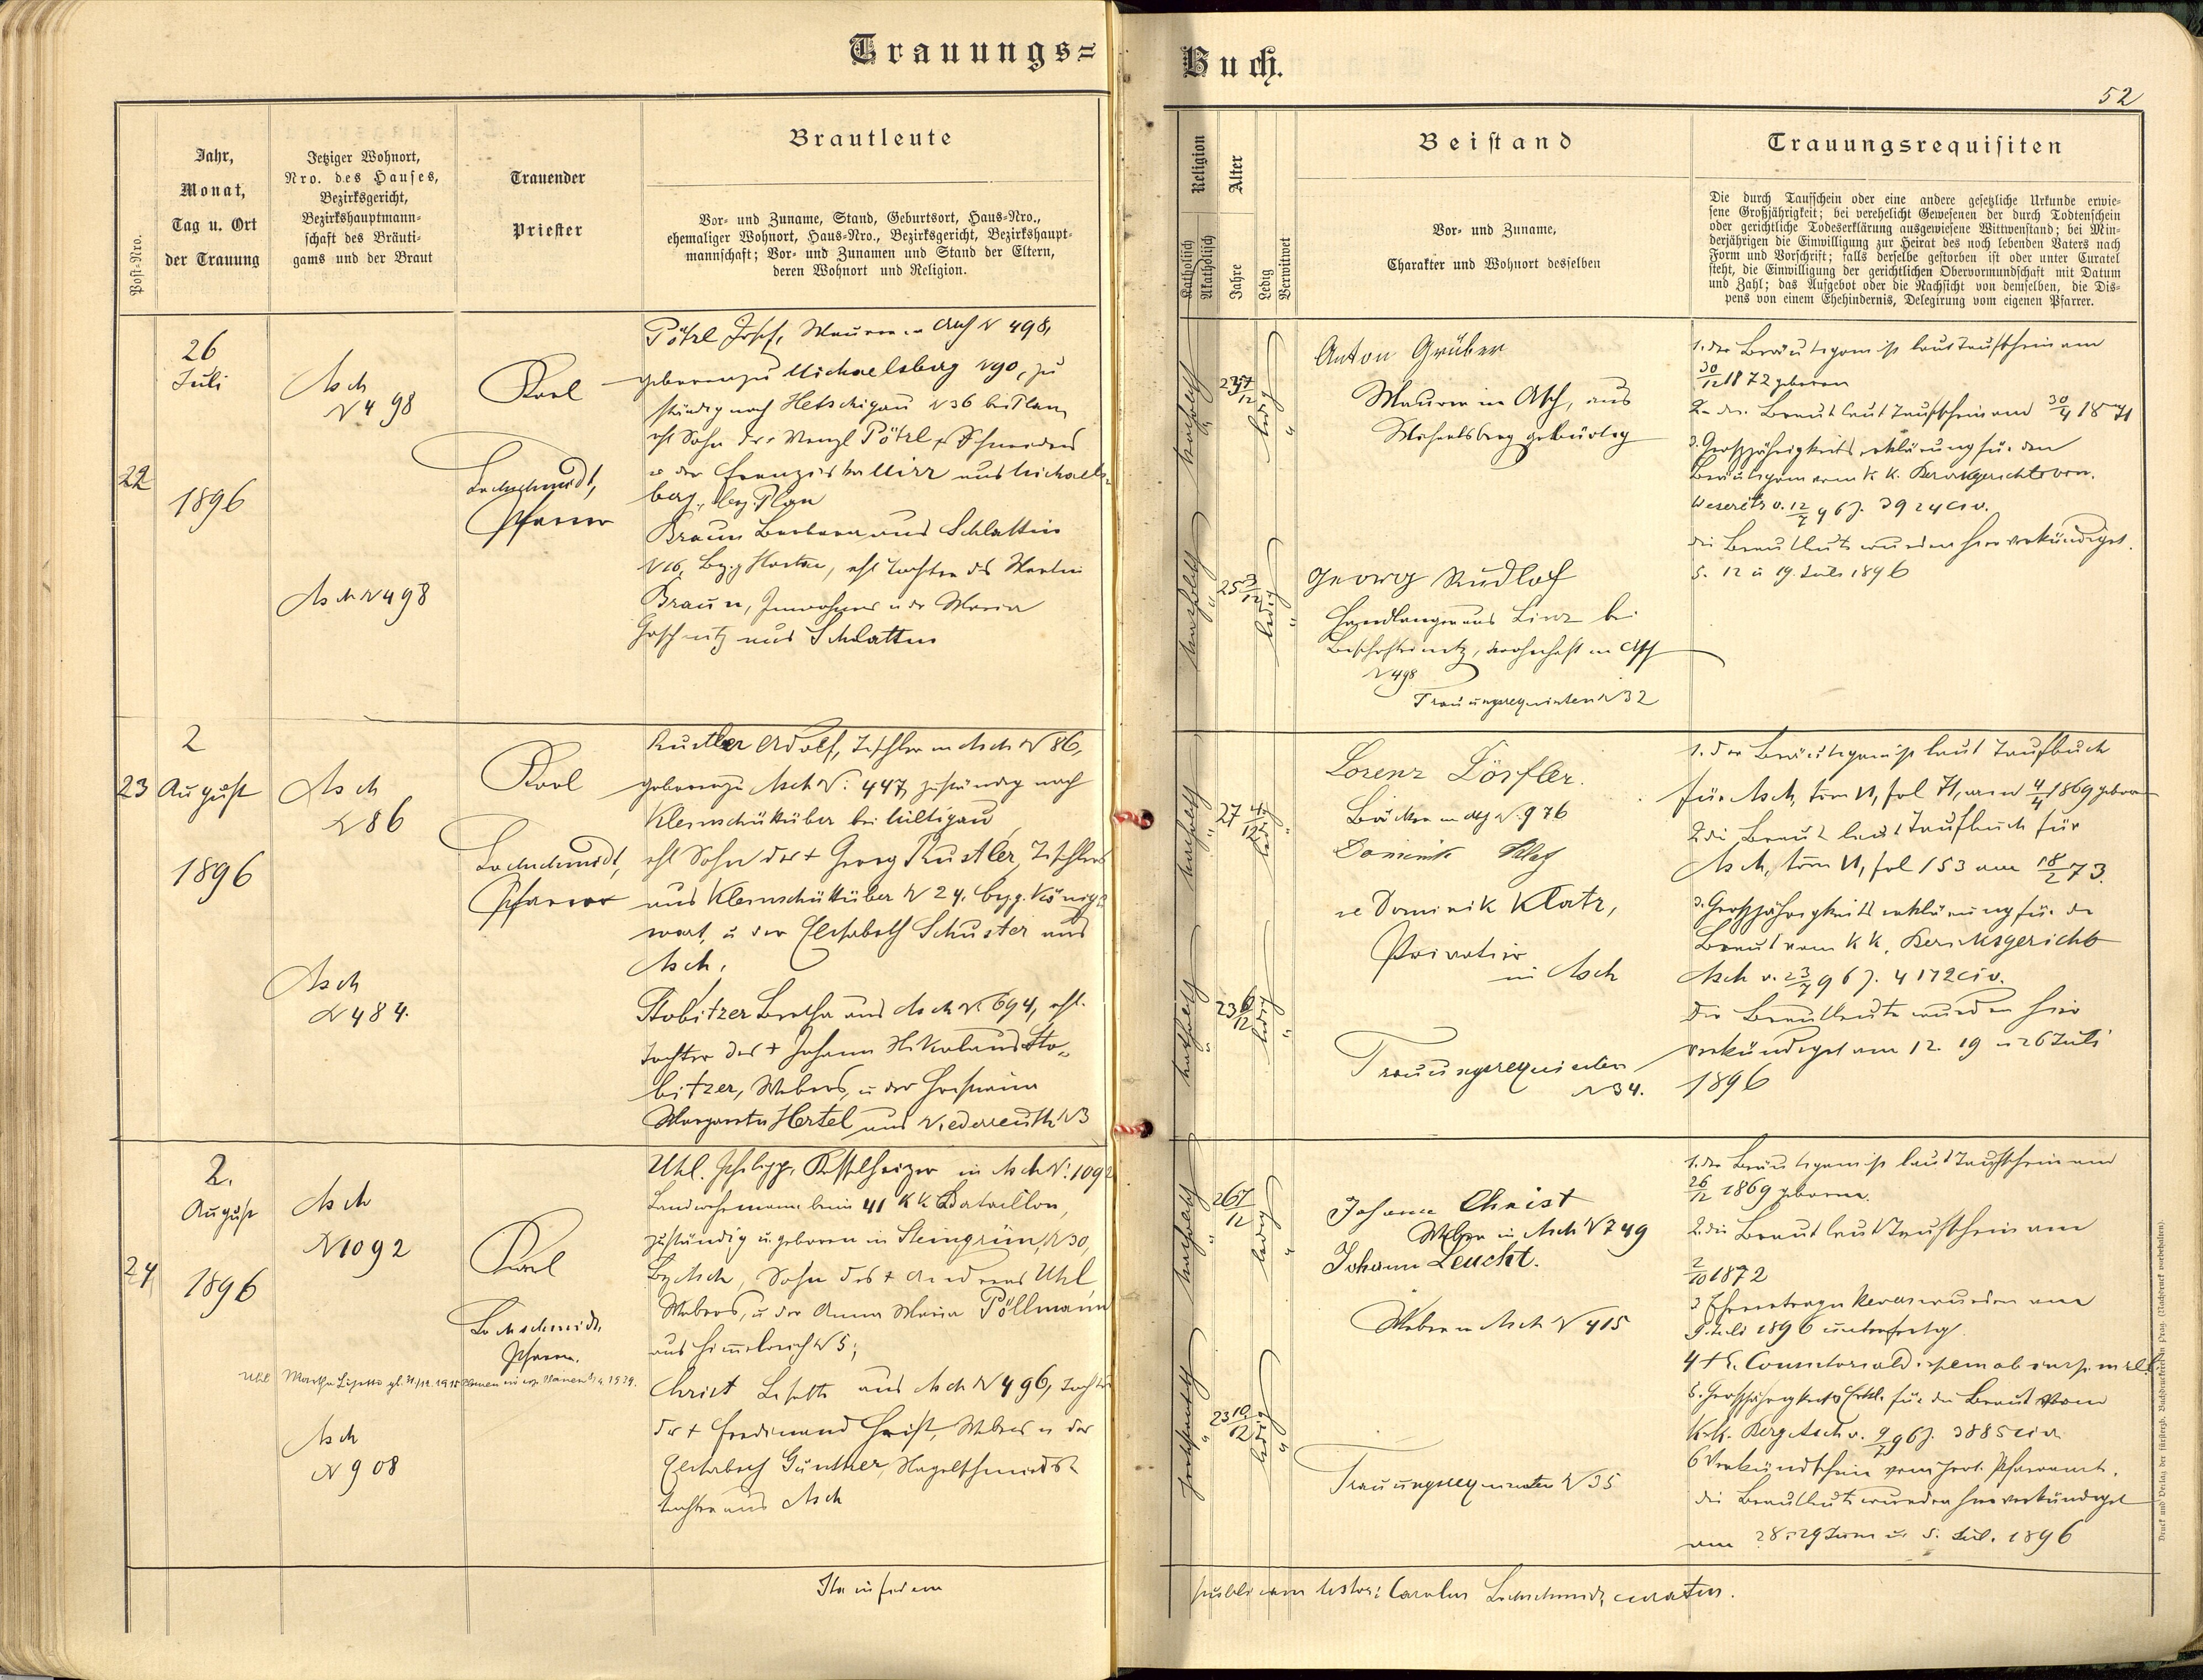 Trauungs=
Buch.
52
Post-Nro.
Jahr,
Monat,
Tag u. Ort
der Trauung
Jetziger Wohnort,
Nro. des Hauses,
Bezirksgericht,
Bezirkshauptmann-
schaft des Bräuti-
gams und der Braut
Trauender
Priester
Brautleute
Vor- und Zuname, Stand, Geburtsort, Haus-Nro.,
ehemaliger Wohnort, Haus-Nro., Bezirksgericht, Bezirkshaupt-
mannschaft; Vor- und Zunamen und Stand der Eltern,
deren Wohnort und Religion.
Religion
Katholisch
Akatholisch
Alter
Jahre
Ledig
Verwitwet
Beistand
Vor- und Zuname,
Charakter und Wohnort desselben
Trauungsrequisiten
Die durch Taufschein oder eine andere gesetzliche Urkunde erwie-
sene Großjährigkeit; bei verehelicht Gewesenen der durch Todtenschein
oder gerichtliche Todeserklärung ausgewiesene Wittwenstand; bei Min-
derjährigen die Einwilligung zur Heirat des noch lebenden Vaters nach
Form und Vorschrift; falls derselbe gestorben ist oder unter Curatel
steht, die Einwilligung der gerichtlichen Obervormundschaft mit Datum
und Zahl; das Aufgebot oder die Nachsicht von demselben, die Dis-
pens von einem Ehehindernis, Delegirung vom eigenen Pfarrer.
22
26
Juli
1896
Asch
N 498
Asch N 498
Karl
Lochschmidt,
Pfarrer
Pötzl Josef, Maurer in Asch N 498,
geboren zu Michaelsberg N 90, zu
ständig nach Hetschigau N 36 bei Plan,
ehl Sohn des Wenzl Pötzl, Schneiders
u der Franziska aus Michaels-
berg, bez. Plan
Braun Barbara aus Schlattin
N 16, Bez., ehl Tochter des Martin
Braun, Inwohners u der Maria
aus Schlattin
katholisch
23 7/12
ledig
katholisch
25 3/12
ledig
Anton Grüber
Maurer in Asch, aus
Michelsberg gebürtig
Georg Rudlof
Handlanger aus Linz bei
Bischofteinitz, wohnhaft in Asch
N 498
Trauungsrequisiten N 32
1. der Bräutigam ist laut Taufschein am
30/12 1872 geboren
2. die Braut laut Taufschein am 30/4 1871
3. Großjährigkeitserklärung für den
Bräutigam vom k. k. Bezirksgerichte von
Weseritz v. 12/7 96 Z. 3924 civ.
die Brautleute wurden hier verkündiget
5. 12 u 19. Juli 1896
23
2
August
1896
Asch
N 86
Asch
N 484.
Karl
Lochschmidt,
Pfarrer
Rustler Adolf, Tischler in Asch N 86,
geboren zu Asch N: 447, zuständig nach
Kleinschüttüber bei Miltigau
ehl Sohn des + Georg Rustler, Tischlers
aus Kleinschüttüber N 24, bezg. Königs-
wart, u der Elisabeth Schuster aus
Asch,
Stobitzer Bertha aus Asch N. 694, ehl.
Tochter des + Johann Nikolaus Sto-
bitzer, Webers, u der
Margareta Hertel aus Niederreuth N 3
katholisch
27 4/12
ledig
katholisch
23 6/12
ledig
Lorenz Dörfler.
Bäcker in Asch N. 976
Dominik
Dominik Klatz,
Privatier
in Asch
Trauungsrequisiten
N 34.
1. der Bräutigam ist laut Taufbuch
für Asch, tom VI, fol 71, am 4/4 1869 geboren
2. die Braut laut Taufbuch für
Asch, tom VI, fol 153 am 18/2 73.
3. Großjährigkeitserklärung für die
Braut vom k k. Bezirksgericht
Asch v. 23/7 96 Z. 4172 civ.
Die Brautleute wurden hier
verkündiget am 12. 19 u 26 Juli
1896
24
2.
August
1896
Asch
N 1092
Asch
N 908
Karl
Lochschmidt,
Pfarrer.
Uhl Philipp, Kesselheizer in Asch N: 1092
Landwehrmann beim 41 k k Bataillon,
zuständig u. geboren in Steingrün, N 30,
Bz Asch, Sohn des + Andreas Uhl
Webers, u der Anna Maria Pöllmann
aus Himmelreich N 5;
Christ Lisette aus Asch N 496, Tochter
des + Ferdinand Christ, Webers u der
Elisabeth Günther, Nagelschmieds-
tochter aus Asch
katholisch
26 7/12
ledig
protestantisch
23 10/12
ledig
Johann Christ
Weber in Asch N 749
Johann Leucht.
Weber in Asch N 415
Trauungsrequisiten N 35
1. der Bräutigam ist laut Taufschein am
26/12 1869 geboren.
2. die Braut laut Taufschein am
2/10 1872
9. Juli 1896 unterfertigt.
5. Großjährigkeits Erkl. für die Braut vom
k. k. Bezg Asch v. 9/7 96 Z. 3885 civ.
6 Verkündschein vom prot. Pfarramt.
die Brautleute wurden hier verkündiget
am 28. 29 Juni u. 5. Juli 1896
Ita in fidem
publicam testor: Carolus Lochschmidt, curatus.
Druck und Verlag der fürsterzb. Buchdruckerei in Prag. (Nachdruck vorbehalten).